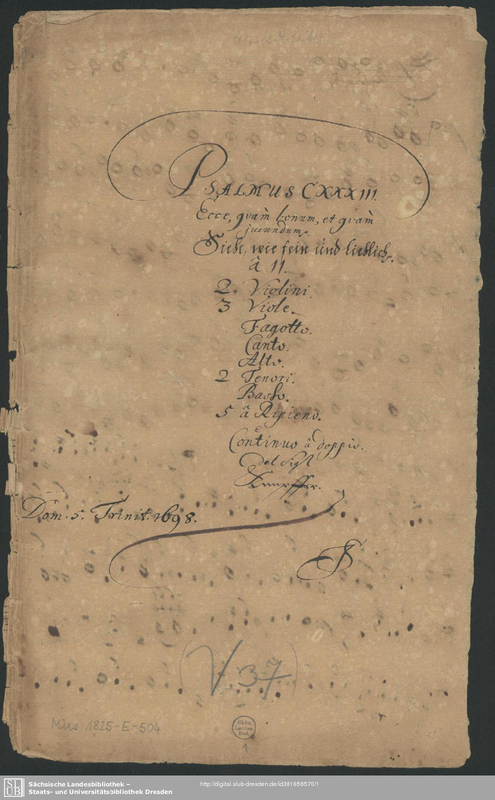 PSALMUS CXXXIII.
Ecce, quàm bonum, et quàm
jucundum.
Siehe, wie fein und lieblich.
â 11.
2. Violini.
3 Viole.
Fagotto.
Canto.
Alto.
2 Tenori.
Basso.
5 â Ripieno.
e
Continuo â doppio.
del Sigr
Knüpffer.
Dom. 5. Trinit. 1698.
(V. 37)
Mus 1825-E-504
Sächs.
Landes-
Bibl.
1
SLUB
Sächsische Landesbibliothek –
Staats- und Universitätsbibliothek Dresden
http://digital.slub-dresden.de/id381658570/1